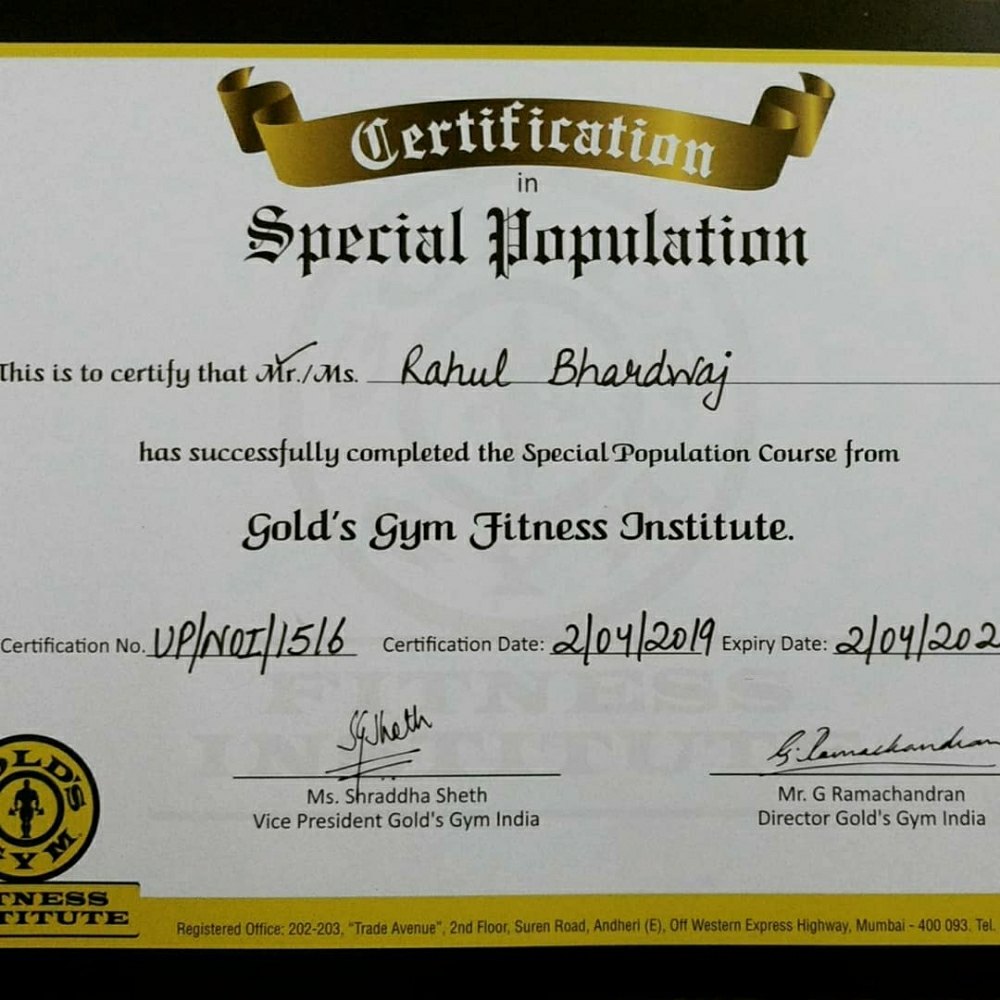 Certification
in
Special Population
This is to certify that Mr./Ms. Rahul Bhardwaj
has successfully completed the Special Population Course from
Gold's Gym Fitness Institute.
Certification No. UP/NOI/1516 Certification Date: 2/04/2019 Expiry Date: 2/04/202
FITNESS
INSTITUTE
SGSheth
G. Ramachandran
Ms. Shraddha Sheth
Vice President Gold's Gym India
Mr. G Ramachandran
Director Gold's Gym India
OLD'S
GYM
TNESS
TITUTE
Registered Office: 202-203, "Trade Avenue", 2nd Floor, Suren Road, Andheri (E), Off Western Express Highway, Mumbai - 400 093. Tel.